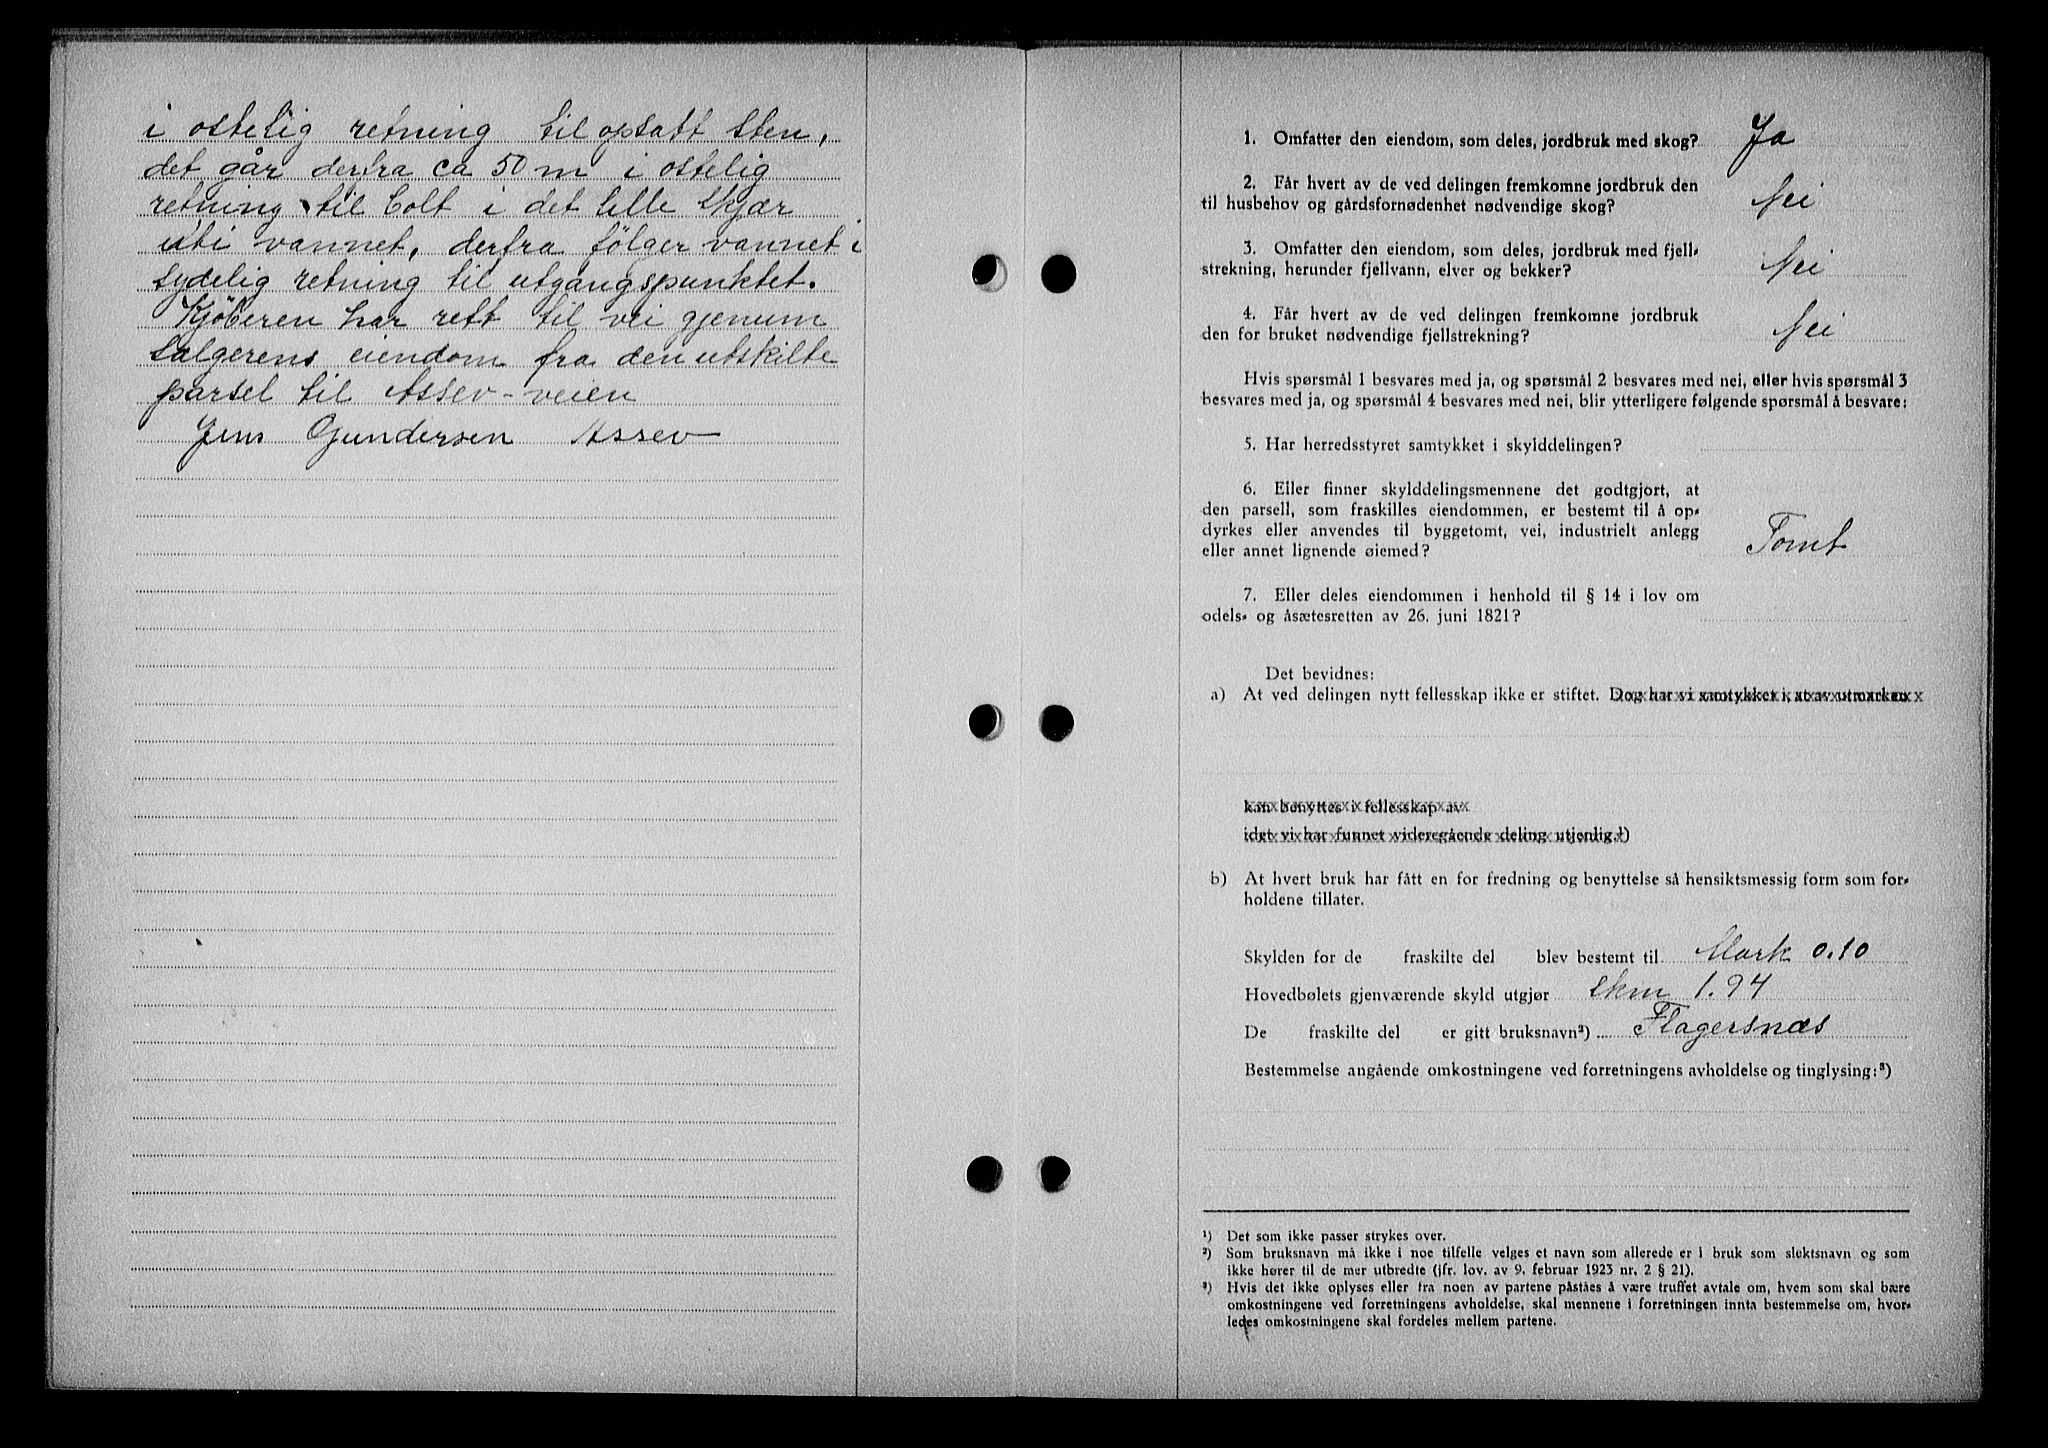 i østelig retning til opsatt sten,
det går derfra ca 50 m i østelig
retning til bolt i det lille skjær
uti vannet, derfra følger vannet i
sydelig retning til utgangspunktet.
Kjöberen har rett til vei gjenum
salgerens eiendom fra den utskilte
parsel til Assev-veien
Jens Gundersen Assev
1. Omfatter den eiendom, som deles, jordbruk med skog? Ja
2. Får hvert av de ved delingen fremkomne jordbruk den
til husbehov og gårdsfornødenhet nødvendige skog? Nei
3. Omfatter den eiendom, som deles, jordbruk med fjell-
strekning, herunder fjellvann, elver og bekker? Nei
4. Får hvert av de ved delingen fremkomne jordbruk
den for bruket nødvendige fjellstrekning? Nei
Hvis spørsmål 1 besvares med ja, og spørsmål 2 besvares med nei, eller hvis spørsmål 3
besvares med ja, og spørsmål 4 besvares med nei, blir ytterligere følgende spørsmål å besvare:
5. Har herredsstyret samtykket i skylddelingen?
6. Eller finner skylddelingsmennene det godtgjort, at
den parsell, som fraskilles eiendommen, er bestemt til å op-
dyrkes eller anvendes til byggetomt, vei, industrielt anlegg
eller annet lignende øiemed? Tomt
7. Eller deles eiendommen i henhold til § 14 i lov om
odels- og åsætesretten av 26. juni 1821?
Det bevidnes:
a) At ved delingen nytt fellesskap ikke er stiftet. Dog har vi samtykket i, at av utmarken
kan benyttes i fellesskap av
idet vi har funnet videregående deling utjenlig.¹)
b) At hvert bruk har fått en for fredning og benyttelse så hensiktsmessig form som for-
holdene tillater.
Skylden for de fraskilte del blev bestemt til Mark 0.10
Hovedbølets gjenværende skyld utgjør skm 1.94
De fraskilte del er gitt bruksnavn²) Flagersnæs
Bestemmelse angående omkostningene ved forretningens avholdelse og tinglysing:³)
¹) Det som ikke passer strykes over.
²) Som bruksnavn må ikke i noe tilfelle velges et navn som allerede er i bruk som slektsnavn og som
ikke hører til de mer utbredte (jfr. lov. av 9. februar 1923 nr. 2 § 21).
³) Hvis det ikke oplyses eller fra noen av partene påståes å være truffet avtale om, hvem som skal bære
omkostningene ved forretningens avholdelse, skal mennene i forretningen innta bestemmelse om, hvor-
ledes omkostningene skal fordeles mellem partene.